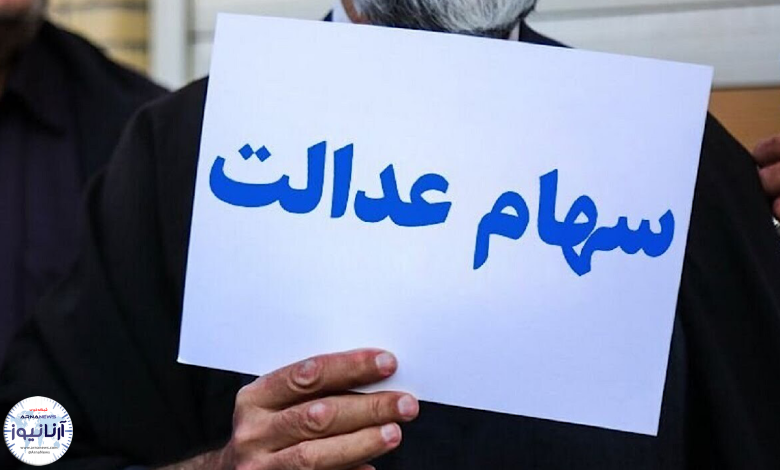 سهام عدالت
ARNANEWS
آرنانیوز